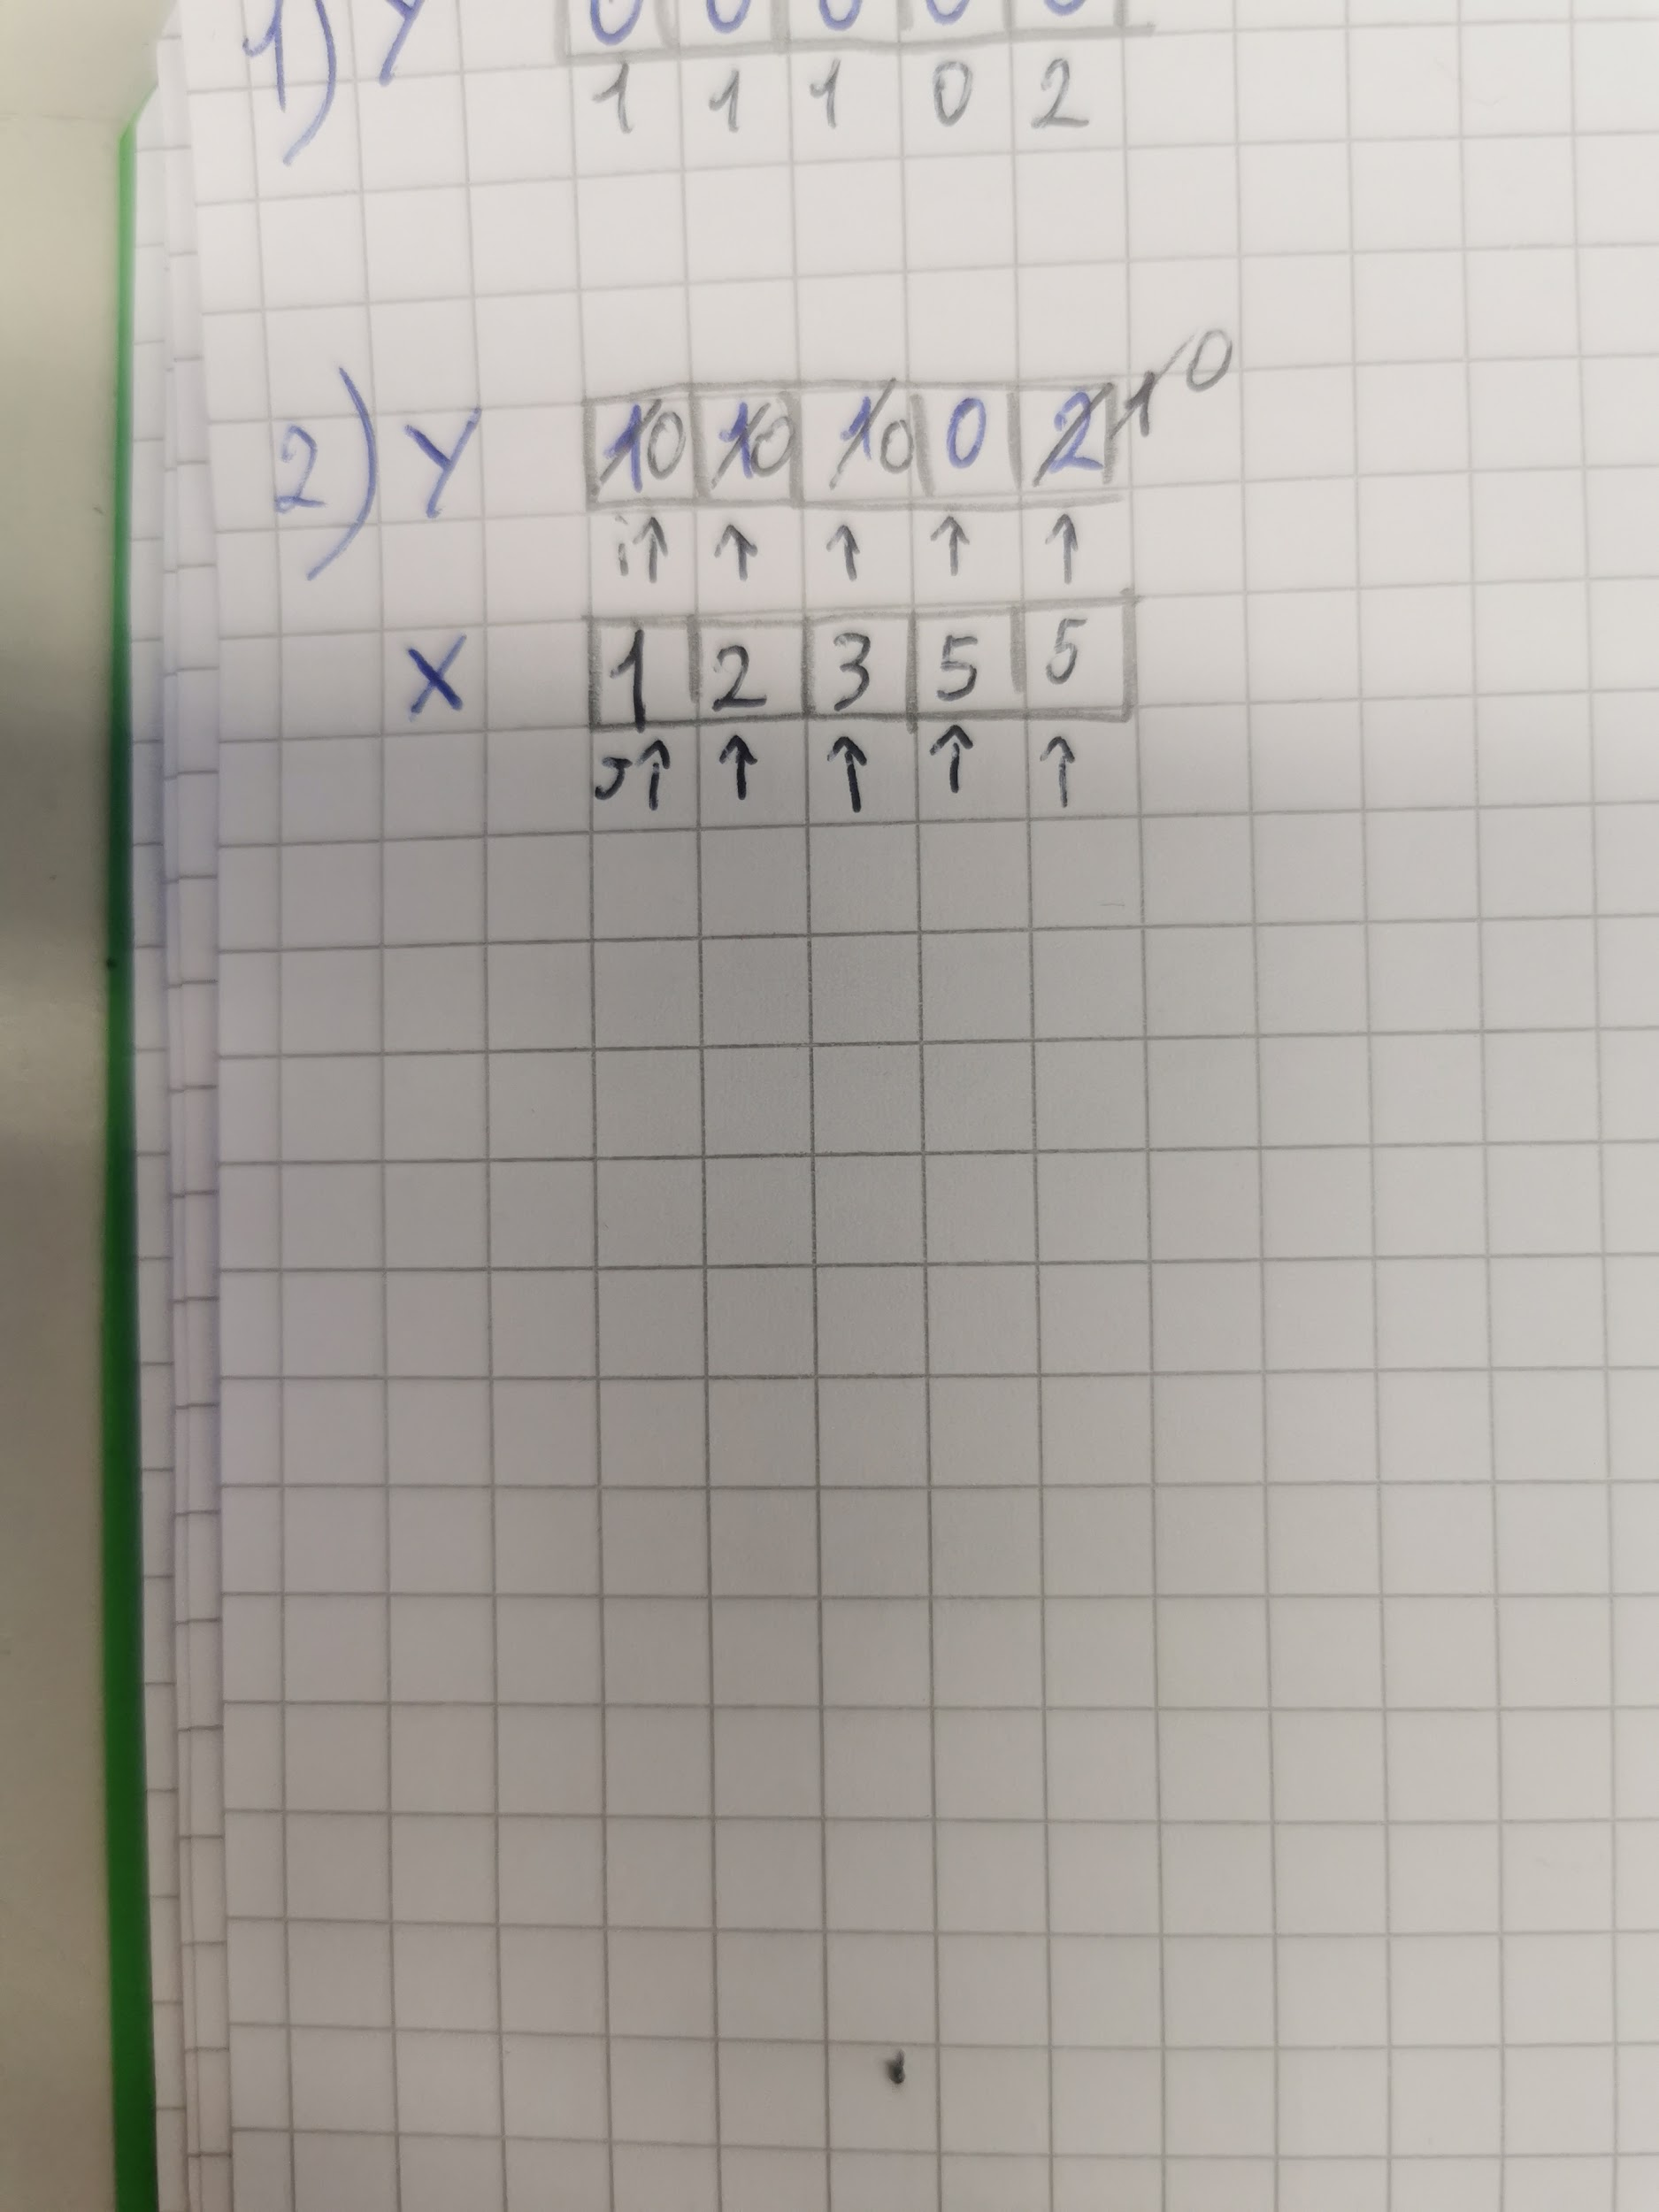 1) Y 0 0 0 0 0
1 1 1 0 2
2) Y 10 10 10 0 2 1 0
i↑ ↑ ↑ ↑ ↑
X 1 2 3 5 5
J↑ ↑ ↑ ↑ ↑